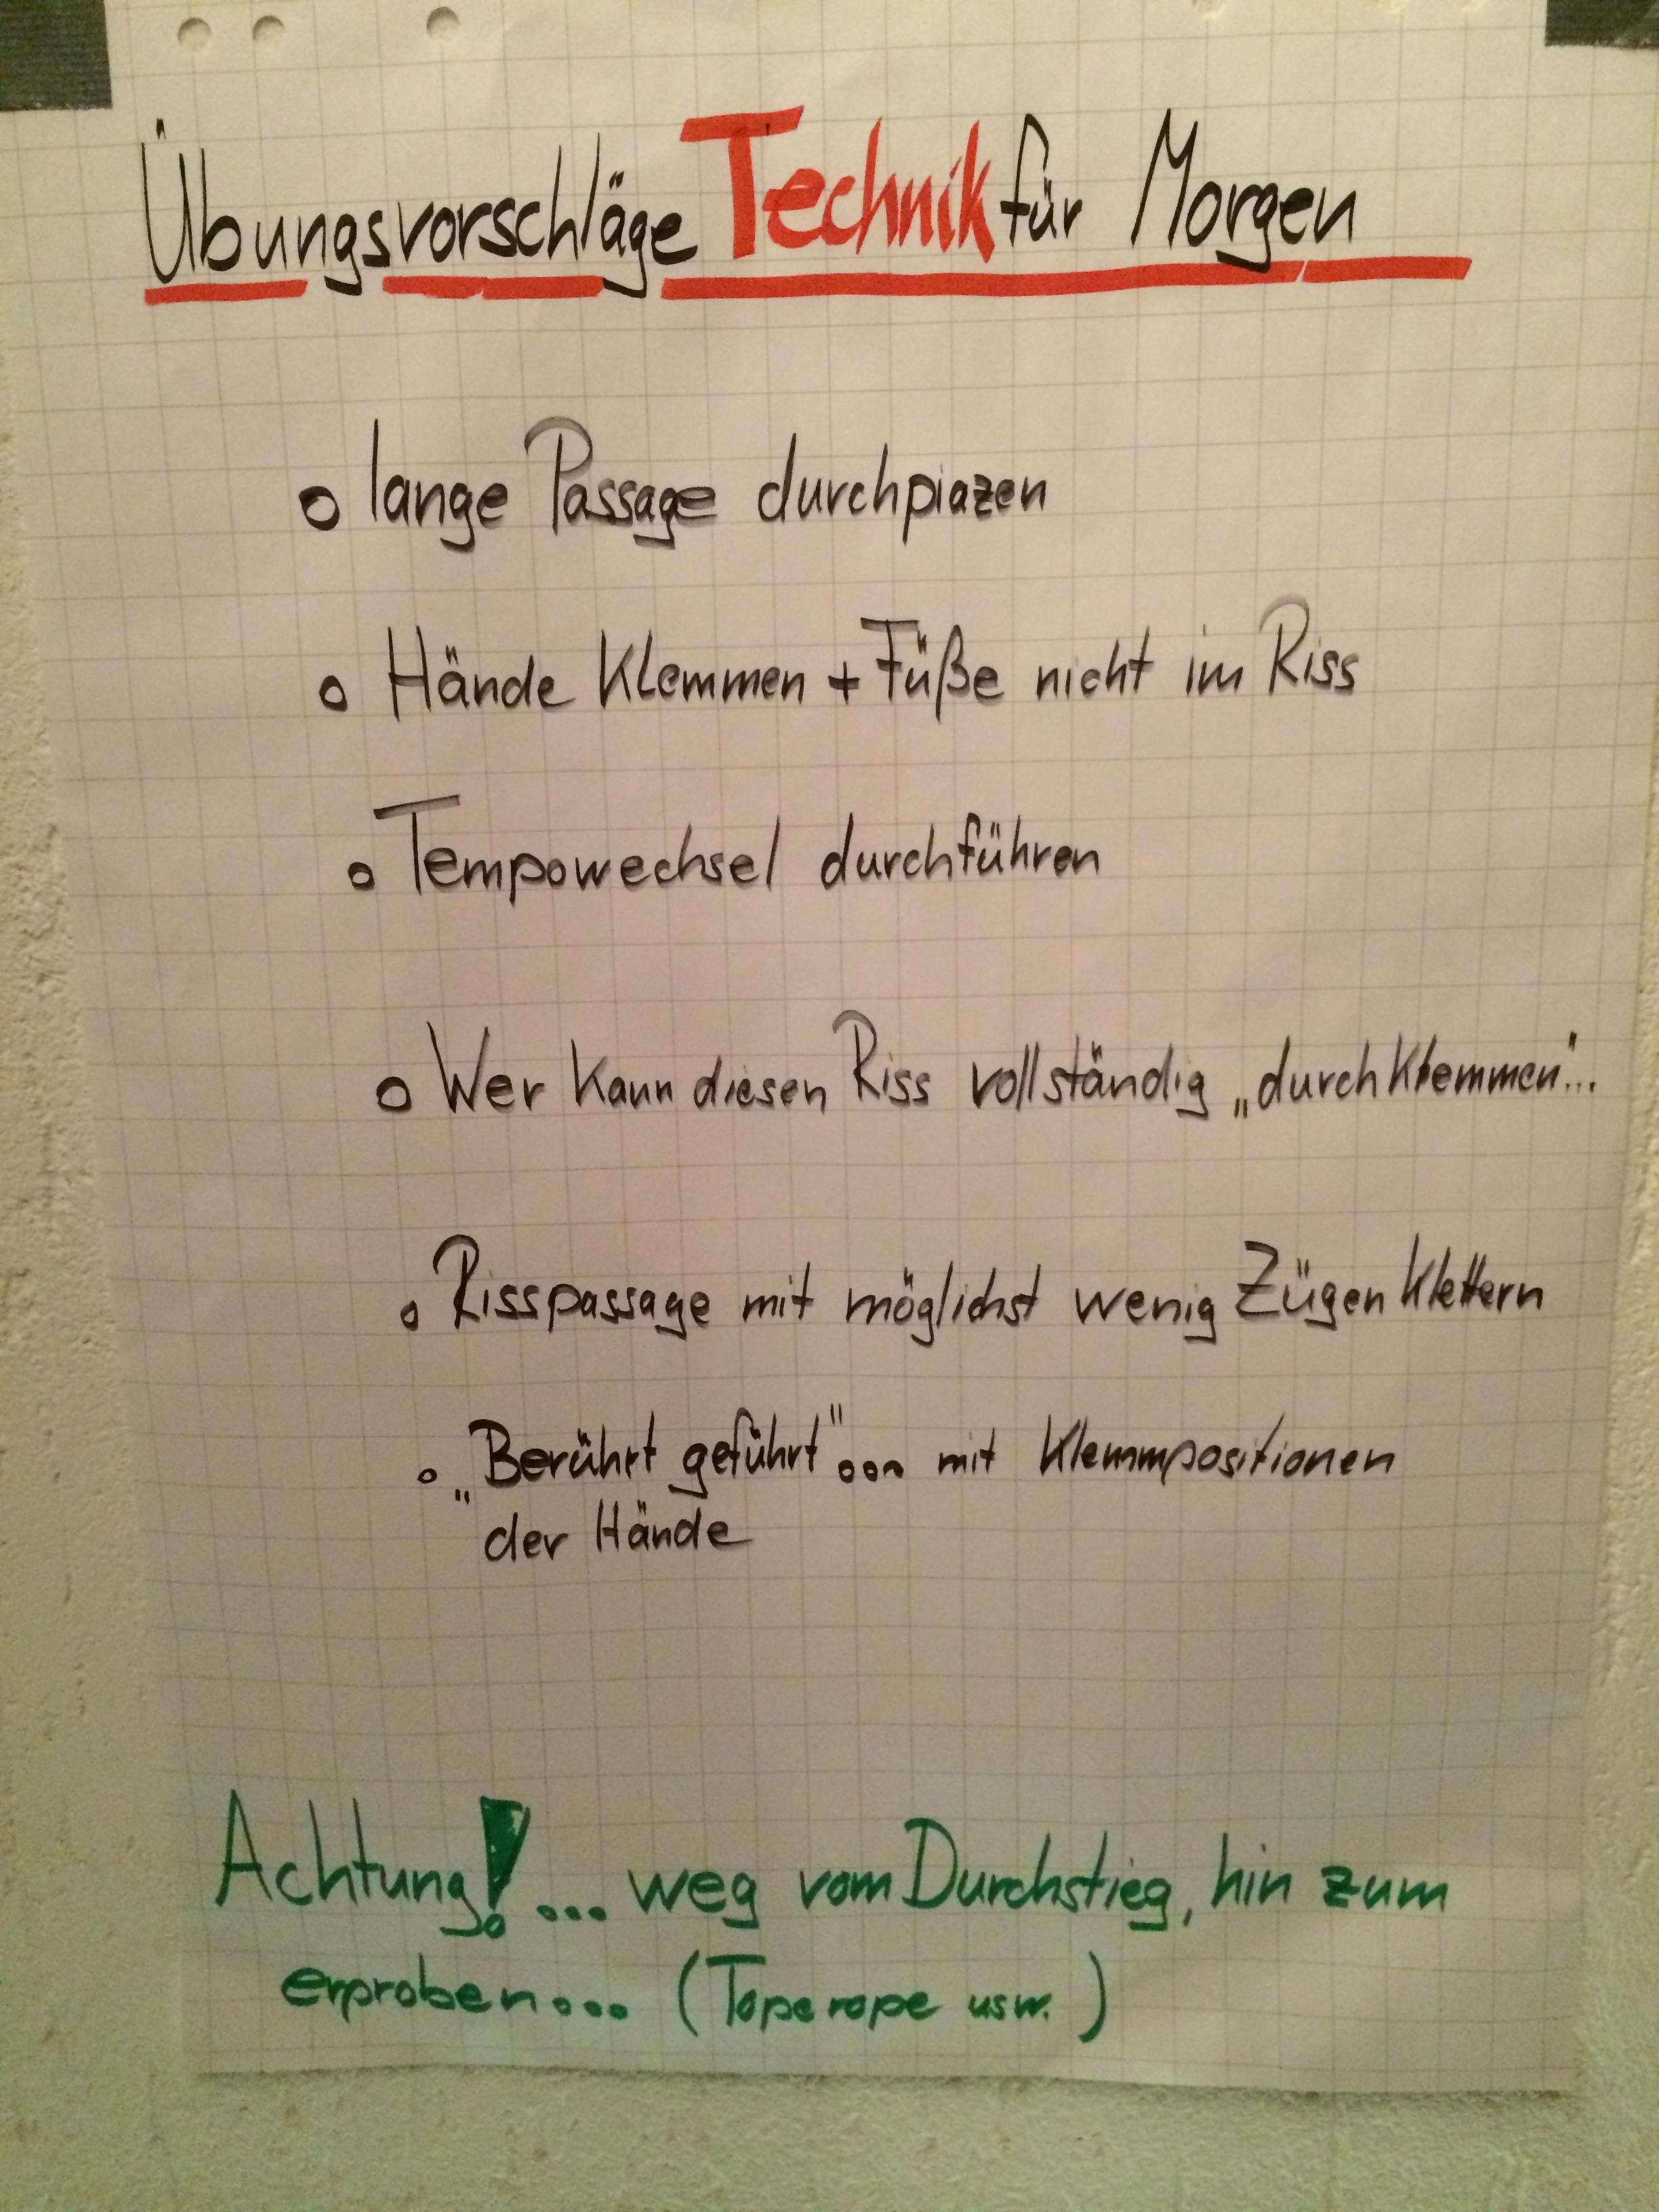 Übungsvorschläge Technik für Morgen
o lange Passage durchpiazen
o Hände Klemmen + Füße nicht im Riss
o Tempowechsel durchführen
o Wer kann diesen Riss vollständig „durchklemmen"...
o Risspassage mit möglichst wenig Zügen klettern
o „Berührt geführt"... mit Klemmpositionen
der Hände
Achtung! ... weg vom Durchstieg, hin zum
erproben... (Toperope usw.)